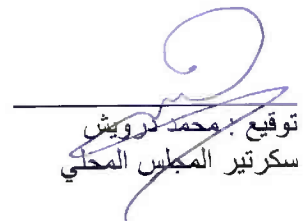 توقيع : محمد درويش
سكرتير المجلس المحلي